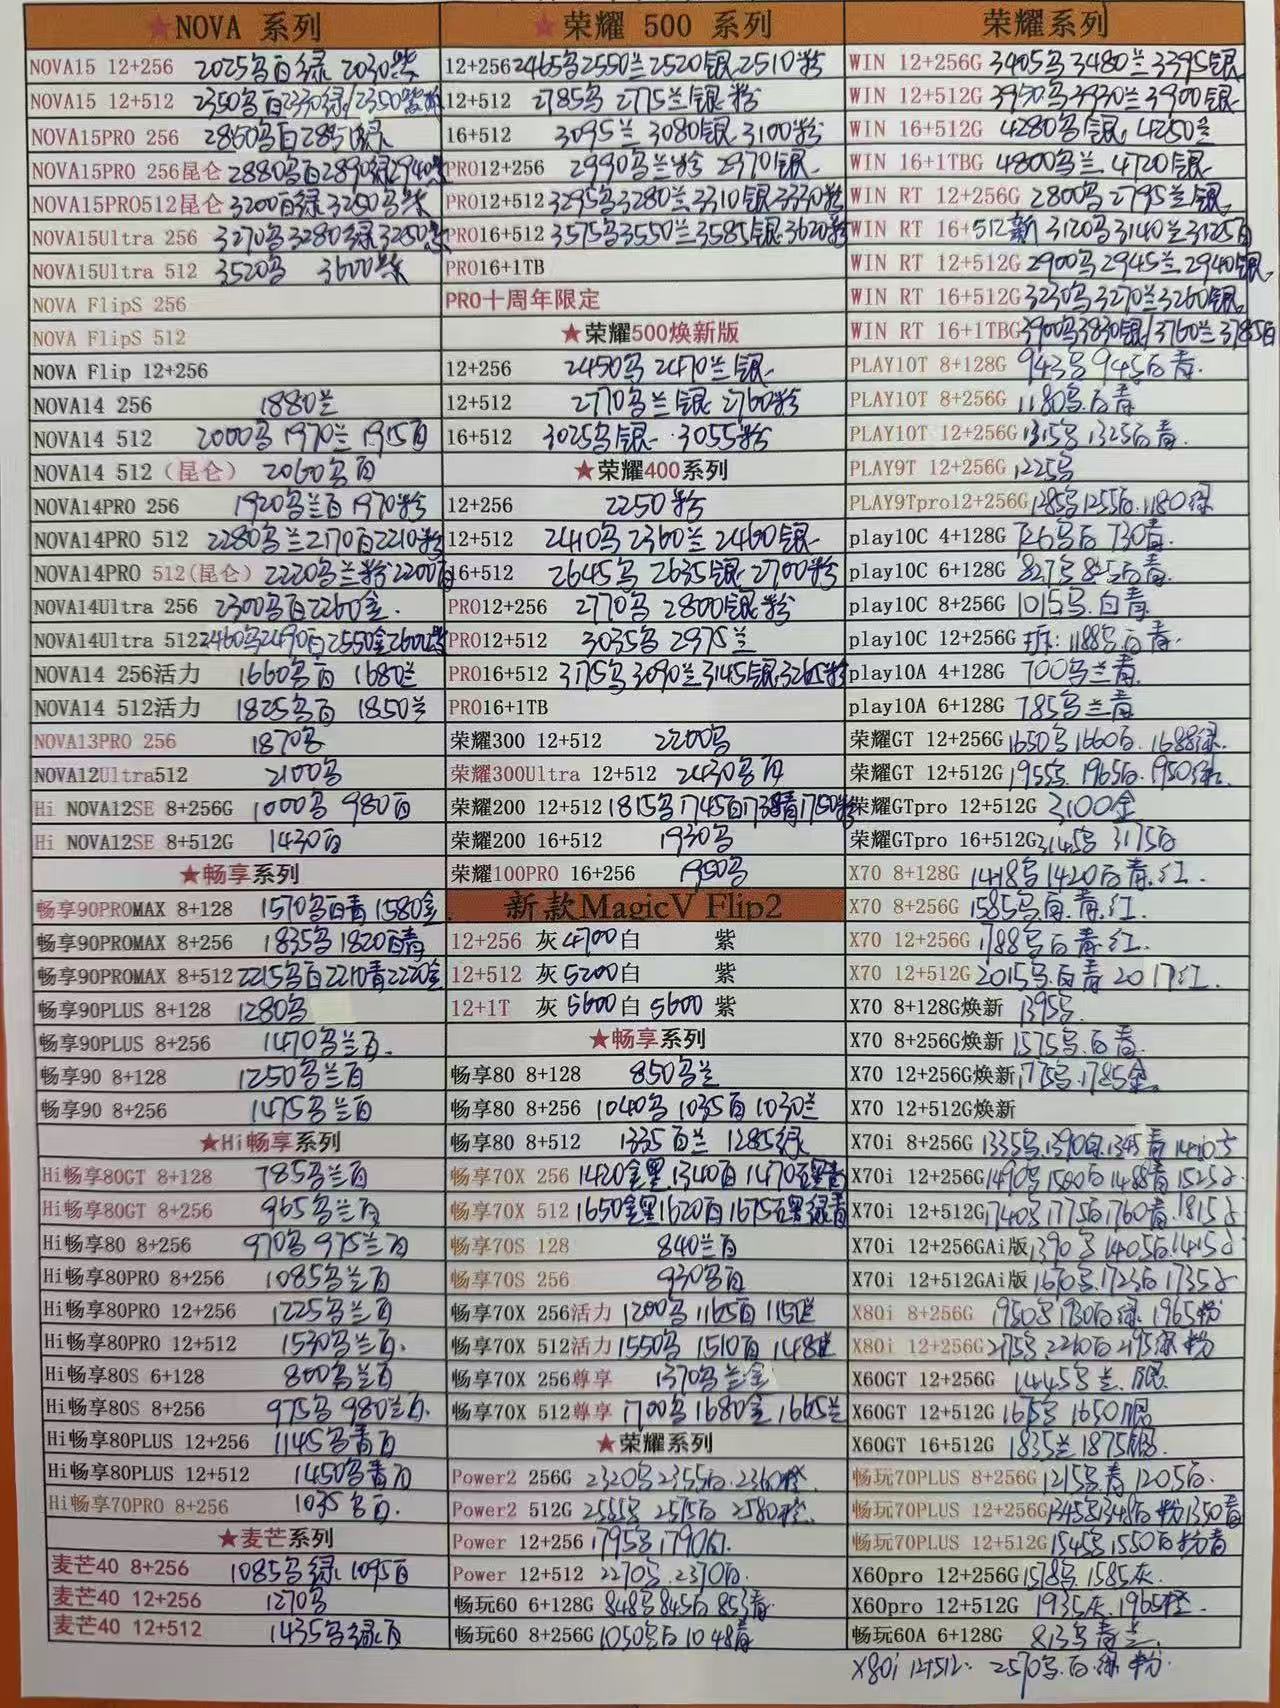 ★NOVA 系列
NOVA15 12+256 2025乌百绿 2030紫
NOVA15 12+512 2350乌百2330绿/2350紫
NOVA15PRO 256 2860乌百2851绿
NOVA15PRO 256昆仑 2880乌百2890绿2940紫
NOVA15PRO512昆仑 3200百绿 3250乌紫
NOVA15Ultra 256 3270乌3280绿3250紫
NOVA15Ultra 512 3520乌 3600紫
NOVA FlipS 256
NOVA FlipS 512
NOVA Flip 12+256
NOVA14 256 1880兰
NOVA14 512 2000乌 1970兰 1915百
NOVA14 512（昆仑） 2060乌百
NOVA14PRO 256 1920乌兰百 1970粉
NOVA14PRO 512 2280乌兰2170百2210粉
NOVA14PRO 512(昆仑) 2220乌兰粉2200百
NOVA14Ultra 256 2300乌百2260金.
NOVA14Ultra 512 2460乌2490百2550金2600紫
NOVA14 256活力 1660乌百 1680兰
NOVA14 512活力 1825乌百 1850兰
NOVA13PRO 256 1870乌
NOVA12Ultra512 2100乌
Hi NOVA12SE 8+256G 1000乌 980百
Hi NOVA12SE 8+512G 1430百
★畅享系列
畅享90PROMAX 8+128 1570乌百青 1580金
畅享90PROMAX 8+256 1835乌 1820百青
畅享90PROMAX 8+512 2215乌百2210青2220金
畅享90PLUS 8+128 1280乌
畅享90PLUS 8+256 1470乌兰百.
畅享90 8+128 1250乌兰百
畅享90 8+256 1475乌兰百
★Hi畅享系列
Hi畅享80GT 8+128 785乌兰百
Hi畅享80GT 8+256 965乌兰百
Hi畅享80 8+256 970乌 975兰百
Hi畅享80PRO 8+256 1085乌兰百
Hi畅享80PRO 12+256 1225乌兰百
Hi畅享80PRO 12+512 1530乌兰百.
Hi畅享80S 6+128 800乌兰百
Hi畅享80S 8+256 975乌 980兰百.
Hi畅享80PLUS 12+256 1145乌青百
Hi畅享80PLUS 12+512 1450乌青百
Hi畅享70PRO 8+256 1035乌百.
★麦芒系列
麦芒40 8+256 1085乌绿 1095百
麦芒40 12+256 1270乌
麦芒40 12+512 1435乌绿百
★荣耀 500 系列
12+256 2465乌2550兰2520银2510粉
12+512 2785乌 2775兰银粉
16+512 3095兰 3080银 3100粉
PRO12+256 2990乌兰粉 2970银
PRO12+512 3295乌3280兰3310银3330粉
PRO16+512 3575乌3550兰3585银3620粉
PRO16+1TB
PRO十周年限定
★荣耀500焕新版
12+256 2450乌 2470兰银
12+512 2770乌兰银 2760粉
16+512 3025乌银 3055粉
★荣耀400系列
12+256 2250粉
12+512 2410乌 2360兰 2460银
16+512 2645乌 2635银 2700粉
PRO12+256 2770乌 2800银粉
PRO12+512 3035乌 2975兰
PRO16+512 3175乌3090兰3145银3265粉
PRO16+1TB
荣耀300 12+512 2200乌
荣耀300Ultra 12+512 2430乌百
荣耀200 12+512 1815乌1745百1738青1750粉
荣耀200 16+512 1930乌
荣耀100PRO 16+256 1950乌
新款MagicV Flip2
12+256 灰4700白 紫
12+512 灰5200白 紫
12+1T 灰5600白5600 紫
★畅享系列
畅享80 8+128 850乌兰
畅享80 8+256 1040乌 1035百 1030兰
畅享80 8+512 1335百兰 1285绿
畅享70X 256 1420金黑 1340百 1470
畅享70X 512 1650金黑1620百1675
畅享70S 128 840兰百
畅享70S 256 930乌百
畅享70X 256活力 1200乌 1165百 1151兰
畅享70X 512活力 1550乌 1510百 1481兰
畅享70X 256尊享 1370乌兰金
畅享70X 512尊享 1700乌 1680金 1665兰
★荣耀系列
Power2 256G 2320乌2355百.2360橙
Power2 512G 2555乌 2575百 2580橙
Power 12+256 1795乌1790百.
Power 12+512 2270乌.2370百.
畅玩60 6+128G 848乌845百853青
畅玩60 8+256G 1050乌百 1048青
荣耀系列
WIN 12+256G 3405乌3480兰3395银
WIN 12+512G 3950乌3930兰3900银
WIN 16+512G 4280乌银 4250兰
WIN 16+1TBG 4800乌兰 4720银
WIN RT 12+256G 2800乌 2795兰银
WIN RT 16+512新 3120乌3140兰3125百
WIN RT 12+512G 2900乌2945兰2940银
WIN RT 16+512G 3230乌3270兰3260银
WIN RT 16+1TBG 3900乌3830银/3760兰3785百
PLAY10T 8+128G 943乌945百青.
PLAY10T 8+256G 1180乌.百青
PLAY10T 12+256G 1315乌1325百青.
PLAY9T 12+256G 1225乌
PLAY9Tpro12+256G 1285乌1255百.1180绿
play10C 4+128G 726乌百 730青
play10C 6+128G 827乌 百青
play10C 8+256G 1015乌.白青
play10C 12+256G 1188乌百青.
play10A 4+128G 700乌兰青.
play10A 6+128G 785乌兰青
荣耀GT 12+256G 1650乌1660百.1688绿.
荣耀GT 12+512G 1955乌 1965百 1950绿.
荣耀GTpro 12+512G 3100金
荣耀GTpro 16+512G 3145乌 3175百
X70 8+128G 1418乌1420百青.红.
X70 8+256G 1585乌百.青.红.
X70 12+256G 1788乌百青.红.
X70 12+512G 2015乌.百青 2017红.
X70 8+128G焕新 1395乌.
X70 8+256G焕新 1575乌.百青.
X70 12+256G焕新 1775乌.1785金.
X70 12+512G焕新
X70i 8+256G 1335乌.1390百.1345青
X70i 12+256G 1490乌1500百1488青1525
X70i 12+512G 1740乌1775百1760青.1815
X70i 12+256GAi版 1390乌 1405百1415
X70i 12+512GAi版 1670乌.1723百1735
X80i 8+256G 1950乌1930百绿.1965粉
X80i 12+256G 2175乌2260百2195绿粉
X60GT 12+256G 1445乌兰.银
X60GT 12+512G 1675乌1650银
X60GT 16+512G 1835兰1875银.
畅玩70PLUS 8+256G 1215乌.青 1205百.
畅玩70PLUS 12+256G 1345乌1348百粉1350青
畅玩70PLUS 12+512G 1545乌1550百粉青
X60pro 12+256G 1578乌 1585灰.
X60pro 12+512G 1935灰.1965橙
畅玩60A 6+128G 813乌青兰.
X80i 12+512: 2570乌.百.绿粉.